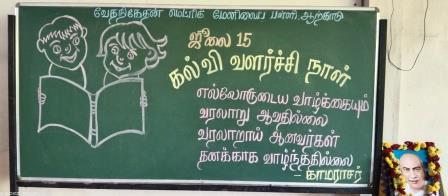 வேதநிகேதன் மெட்ரிக் மேனிலைப் பள்ளி ஆற்காடு
ஜீலை 15
கல்வி வளர்ச்சி நாள்
எல்லோருடைய வாழ்க்கையும்
வரலாறு ஆவதில்லை
வரலாறாய் ஆனவர்கள்
தனக்காக வாழ்ந்ததில்லை
- காமராசர்